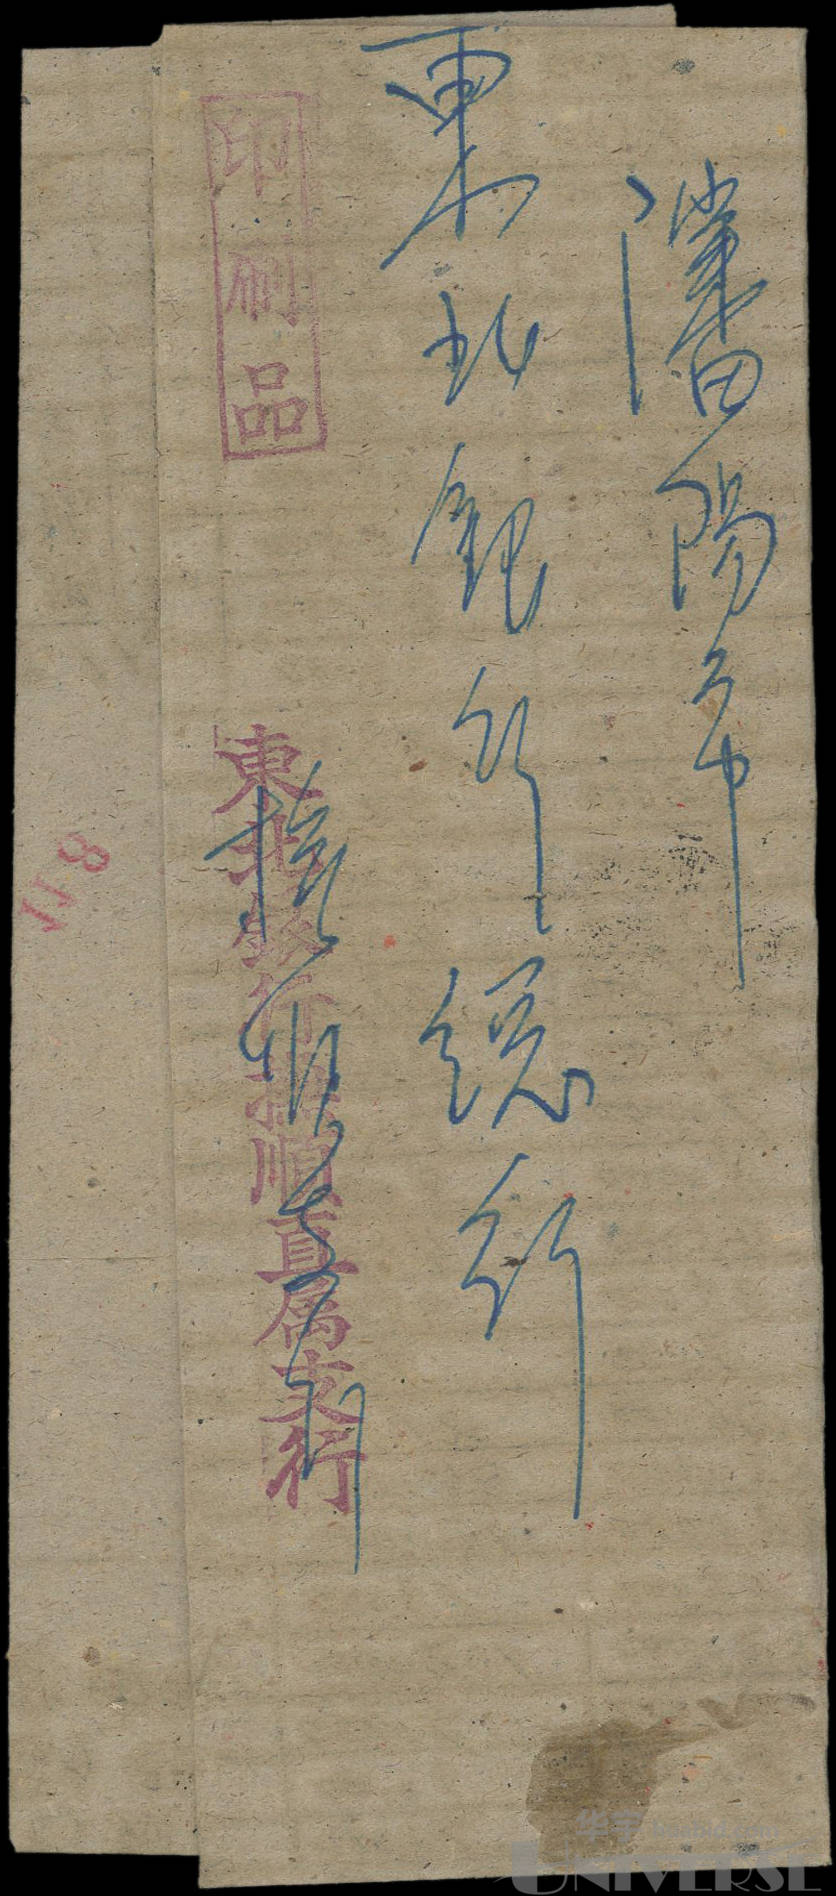 瀋陽市
東北銀行總行
印刷品
東北銀行撫順直属支行
撫順支行
118
华宇
UNIVERSE